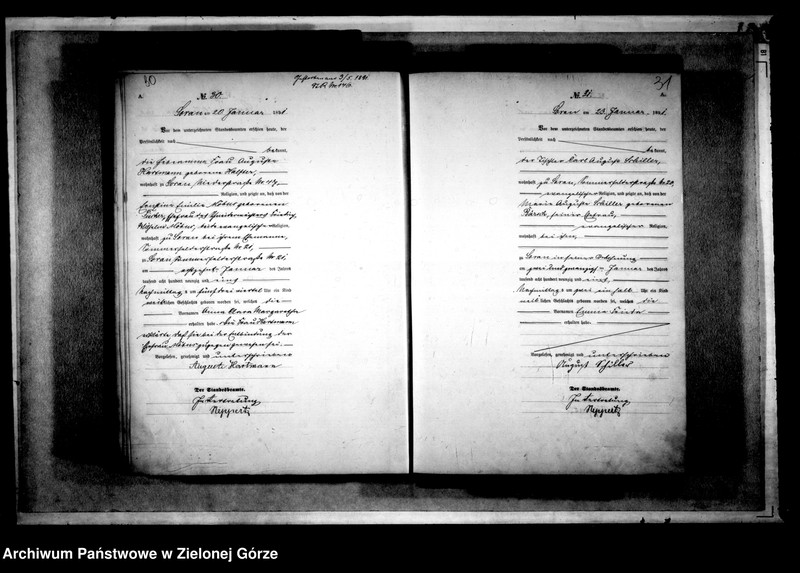 30
A.
№ 30.
Sorau, am 20. Januar 1891.
Vor dem unterzeichneten Standesbeamten erschien heute, der
Persönlichkeit nach
bekannt,
die Hebamme Frau Auguste
Hartmann geborene
wohnhaft zu Sorau, Niederstraße Nr 47,
Religion, und zeigte an, daß von der
Emilie geborenen
Ehefrau des
Wilhelm beide evangelischer Religion,
wohnhaft zu Sorau bei ihrem Ehemanne,
Sommerfelderstraße Nr. 21,
zu Sorau Sommerfelderstraße Nr. 21
am achtzehnten Januar des Jahres
tausend acht hundert neunzig und eins
Nachmittags um fünf drei viertel Uhr ein Kind
weiblichen Geschlechts geboren worden sei, welches die
Vornamen Anna Clara Margarethe
erhalten habe. Die Frau Hartmann
erklärte, daß sie bei der Entbindung der
Ehefrau zugegen gewesen sei.
Vorgelesen, genehmigt und unterschrieben
Auguste Hartmann
Der Standesbeamte.
In Vertretung
Neppert
31
A.
№ 31.
Sorau am 23. Januar 1891.
Vor dem unterzeichneten Standesbeamten erschien heute, der
Persönlichkeit nach
bekannt,
der Karl August Schiller,
wohnhaft zu Sorau, Sommerfelderstraße Nr 20,
evangelischer Religion, und zeigte an, daß von der
Marie Auguste Schiller geborenen
seiner Ehefrau,
evangelischer Religion,
wohnhaft bei ihm,
zu Sorau in seiner Wohnung
am zwei und zwanzigsten Januar des Jahres
tausend acht hundert neunzig und eins
Nachmittags um zwei ein halb Uhr ein Kind
weiblichen Geschlechts geboren worden sei, welches die
Vornamen Emma
erhalten habe.
Vorgelesen, genehmigt und unterschrieben
August Schiller
Der Standesbeamte.
In Vertretung
Neppert
Archiwum Państwowe w Zielonej Górze